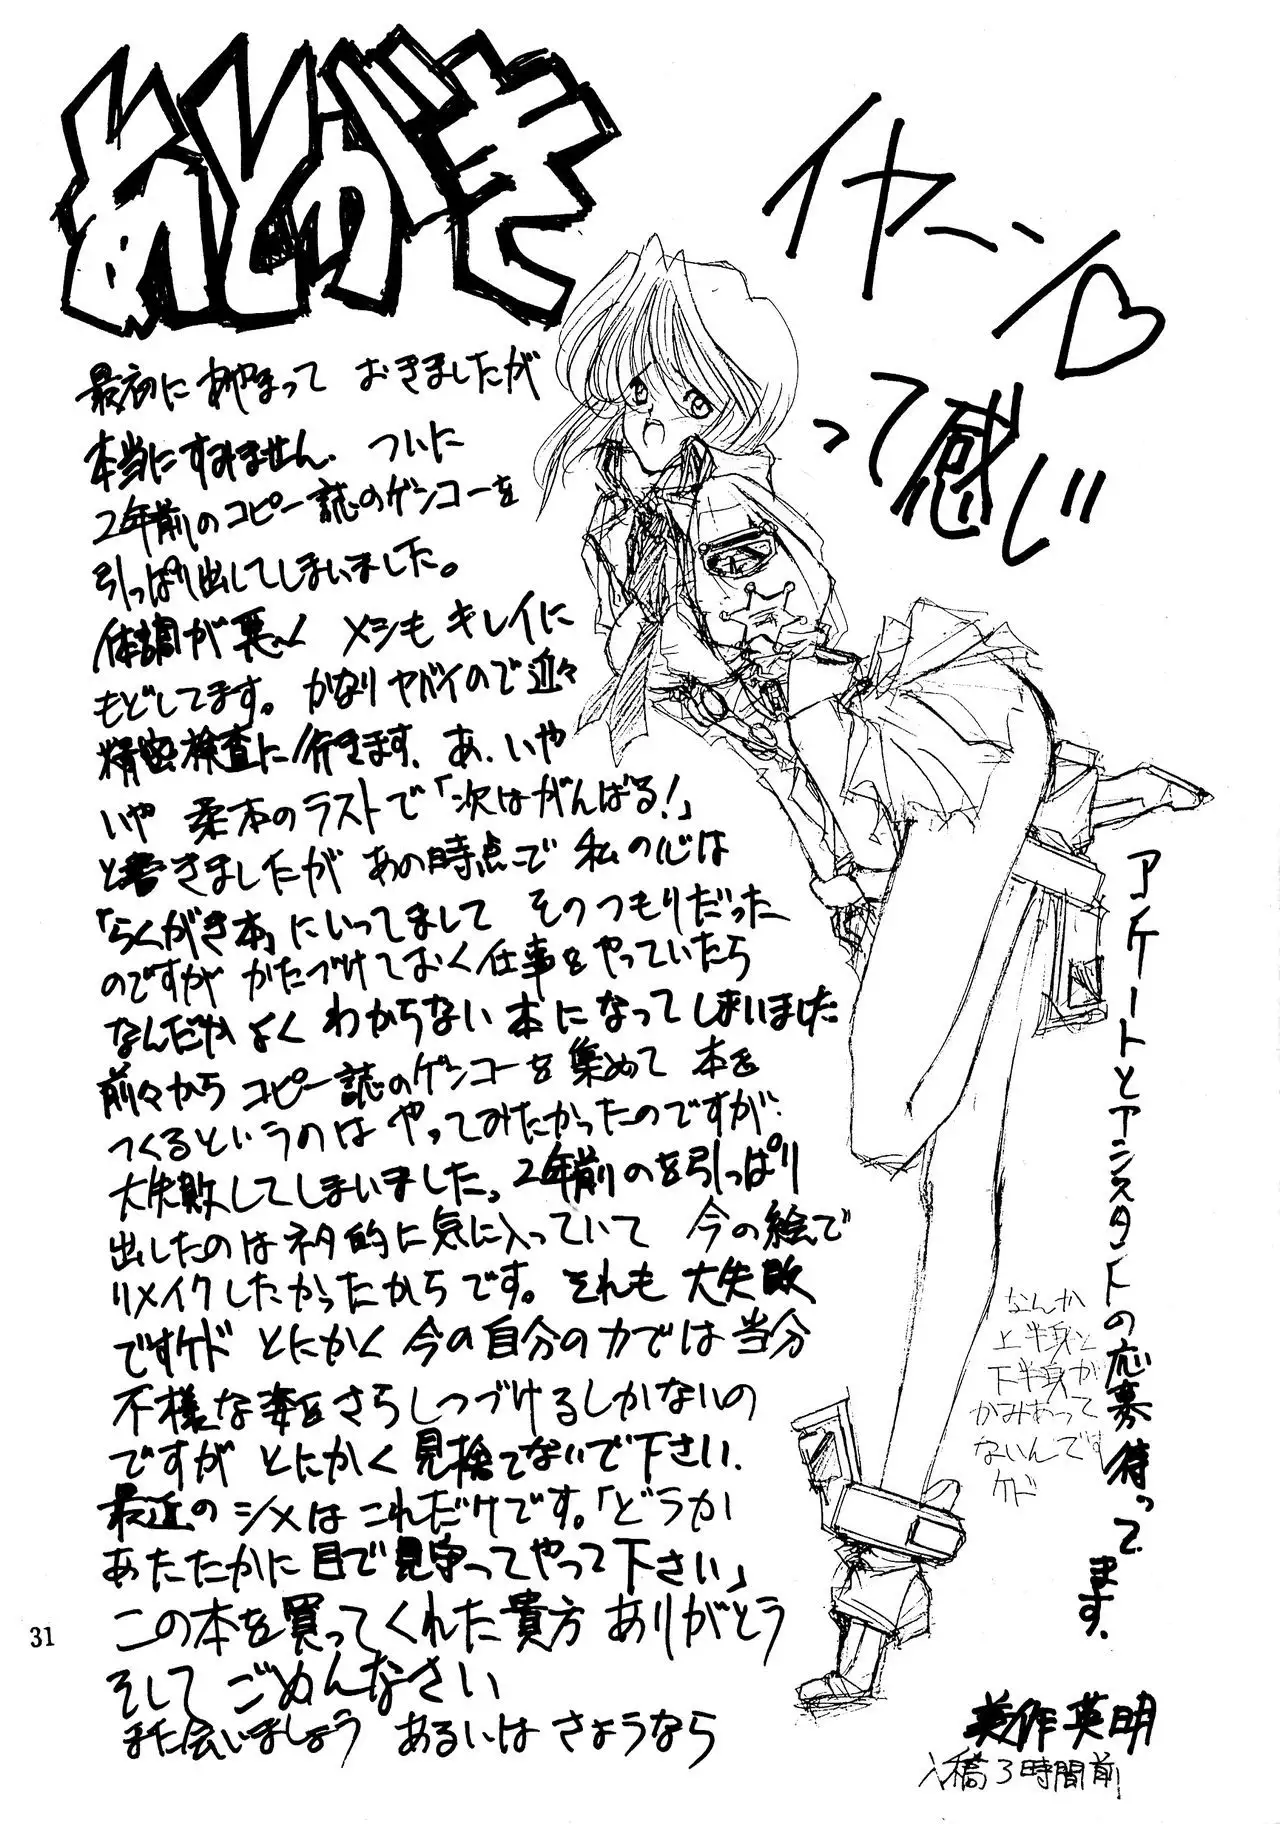 あとがき
イヤーン♡
って感じ
最初にあやまって おきましたが
本当にすみません. ついに
2年前のコピー誌のゲンコーを
引っぱり出してしまいました。
体調が悪く メシもキレイに
もどしてます。かなりヤバイので近々
精密検査に行きます. あ、いや
いや 柔本のラストで「次はがんばる!」
と書きましたが あの時点で 私の心は
「らくがき本」にいってまして そのつもりだった
のですが かたづけておく仕事をやっていたら
なんだかよく わからない本になってしまいました
前々からコピー誌のゲンコーを集めて 本を
つくるというのは やってみたかったのですが.
大失敗してしまいました。2年前のを引っぱり
出したのはネタ的に気に入っていて 今の絵で
リメイクしたかったからです。それも 大失敗
ですケド とにかく 今の自分の力では当分
不様な姿をさらしつづけるしかないの
ですが とにかく 見捨てないで下さい.
最近のシメはこれだけです。「どうか
あたたかに目で見守ってやって下さい」
この本を買ってくれた貴方 ありがとう
そして ごめんなさい
また会いましょう あるいは さようなら
アンケートとアシスタントの応募待ってます.
なんか
上半身と
下半身が
かみあって
ないんです
ケド
美作英明
入稿3時間前
31